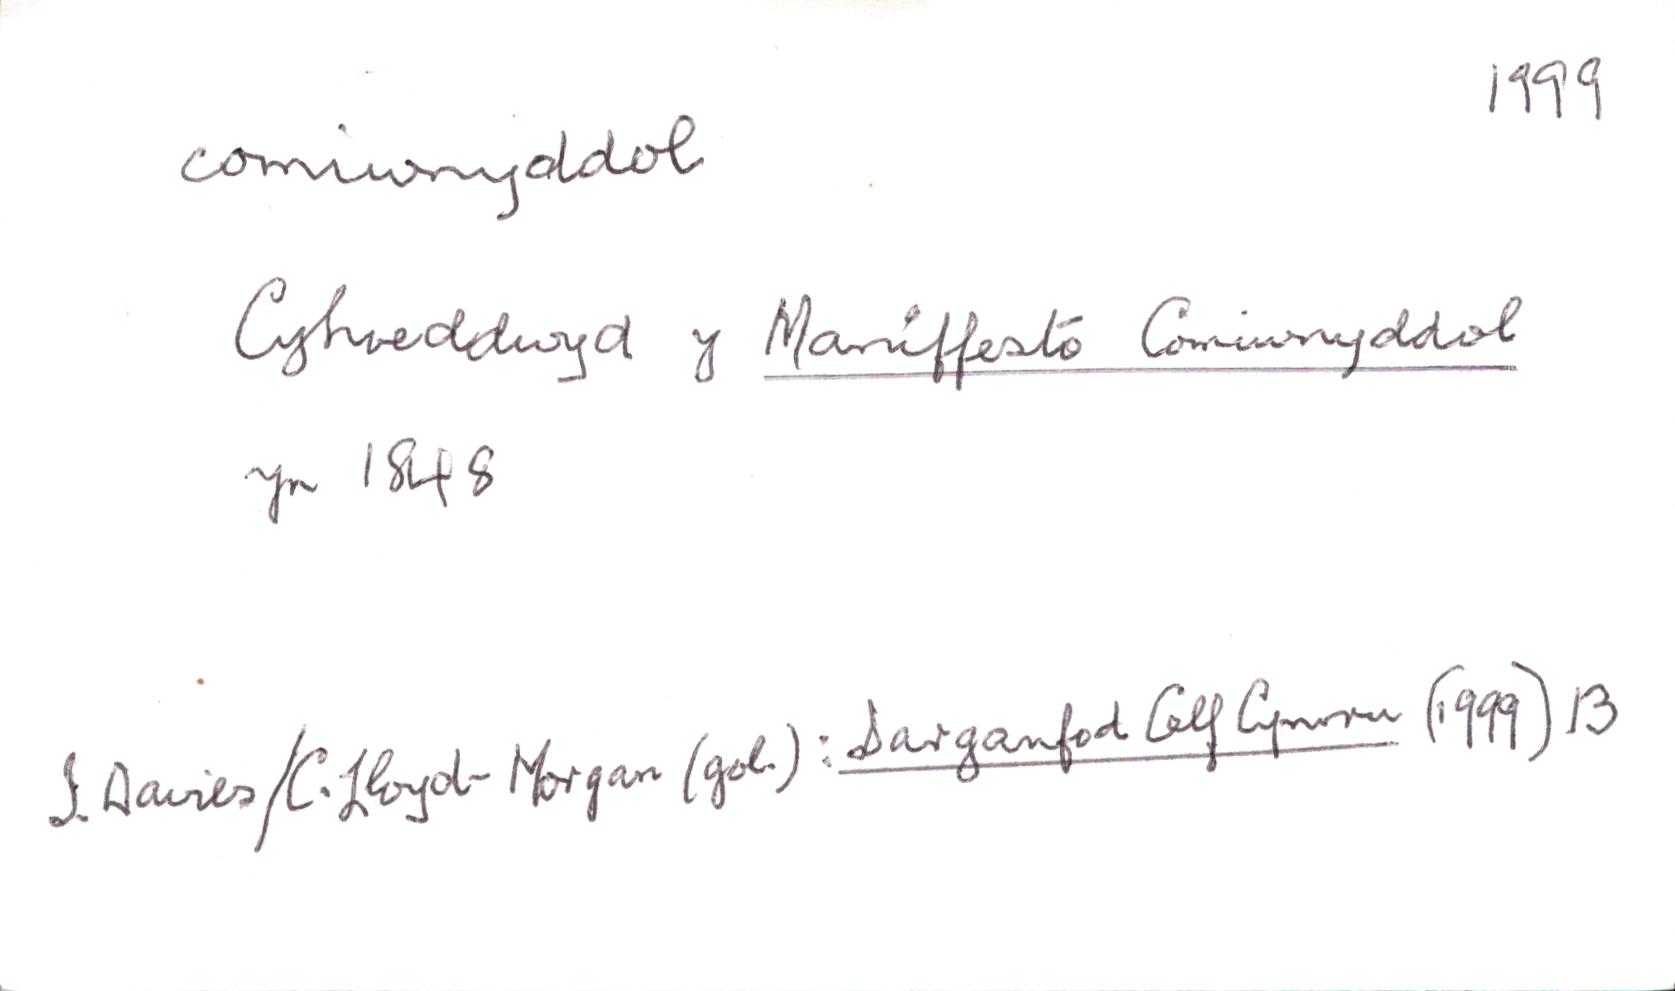 1999
comiwnyddol
Cyhoeddwyd y Maniffesto Comiwnyddol
yn 1848
I. Davies/C. Lloyd-Morgan (gol.): Darganfod Celf Cymru (1999) 13